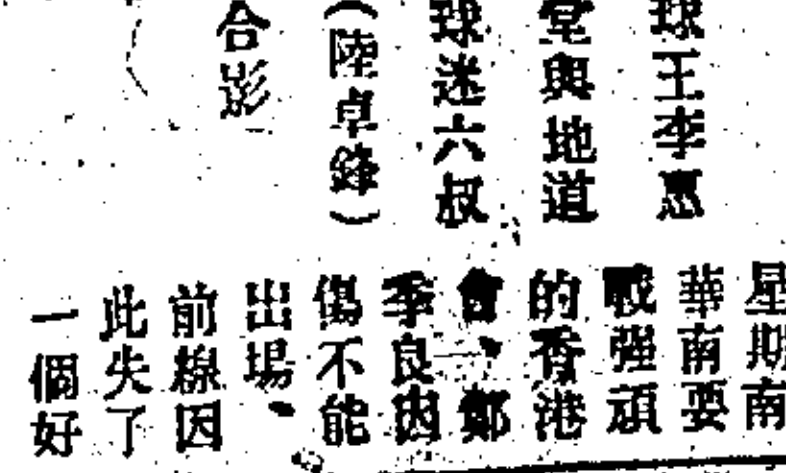 球王李惠
堂與地道
球迷六叔
(陸卓鋒)
合影
星期南
華南要
戰强頑
的香港
會、鄭
季良因
傷不能
出場、
前線因
此失了
一個好